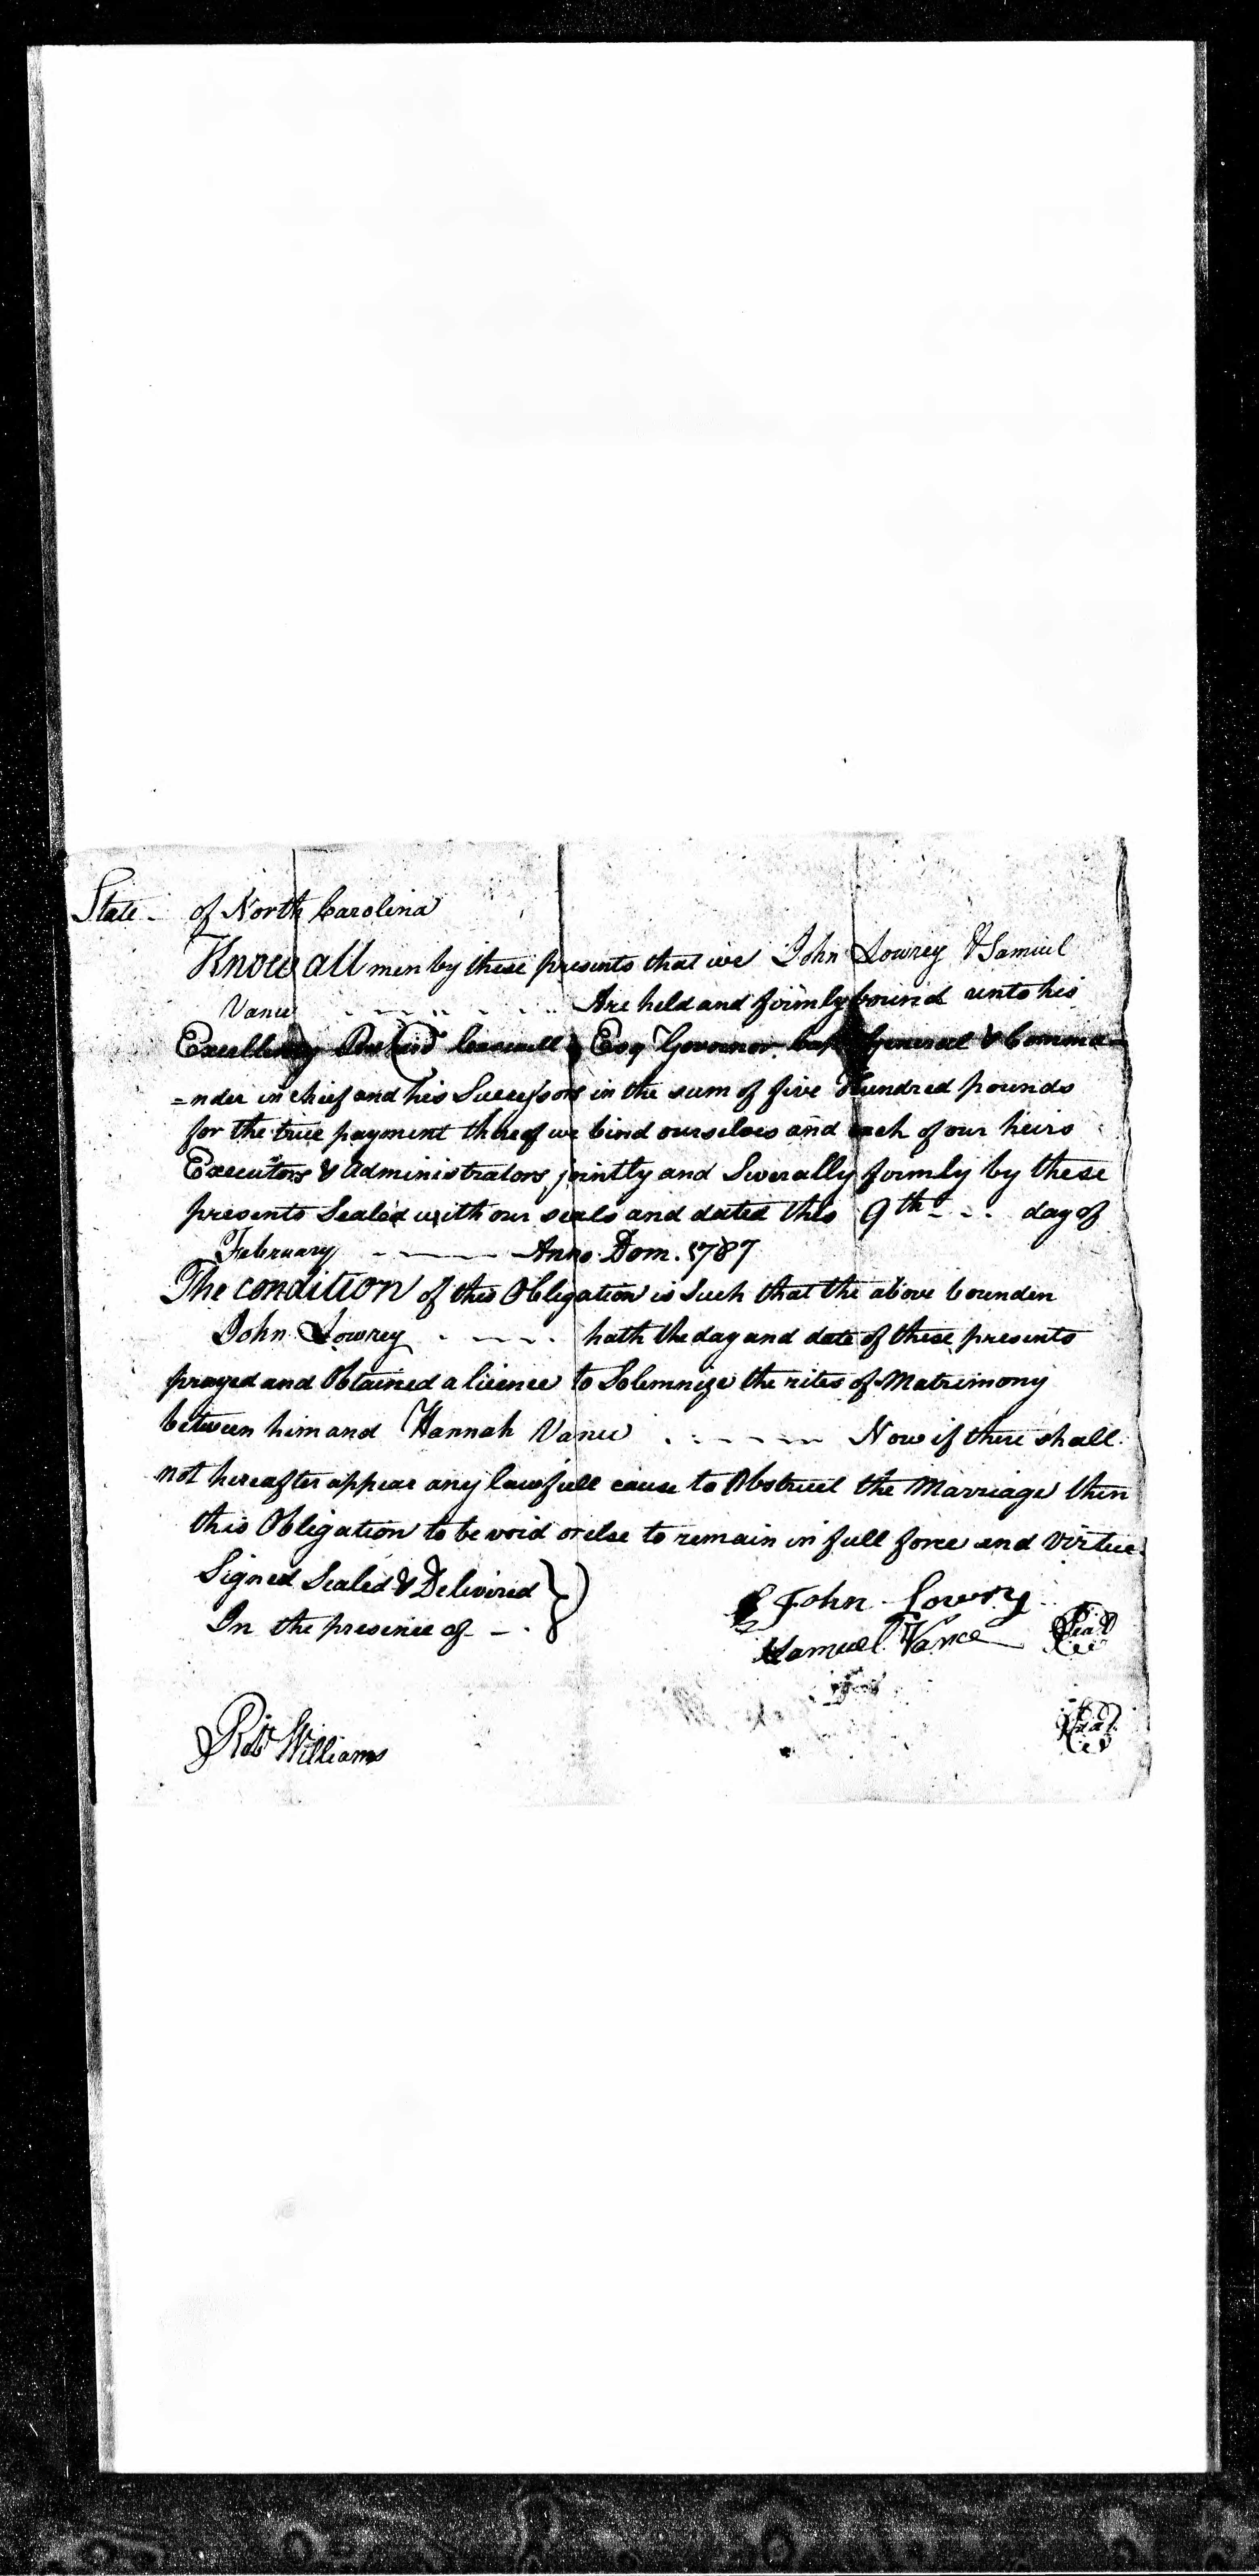 State of North Carolina
Know all men by these presents that we John Lowrey & Samuel
Vance Are held and firmly bound unto his
Excellency Richard Caswell Esq Governor Capt General & Comma-
=nder in chief and his Successors in the sum of five Hundred pounds
for the true payment thereof we bind ourselves and each of our heirs
Executors & Administrators jointly and Severally firmly by these
presents Sealed with our seals and dated this 9th day of
February Anno Dom. 1787
The condition of this Obligation is Such that the above bounden
John Lowrey hath the day and date of these presents
prayed and Obtained a licence to Solemnize the rites of Matrimony
between him and Hannah Vance Now if there shall
not hereafter appear any lawfull cause to Obstruct the Marriage then
this Obligation to be void or else to remain in full force and virtue.
Signed Sealed & Delivered
In the presence of
John Lowry
Samuel Vance Seal
Seal
Rob Williams